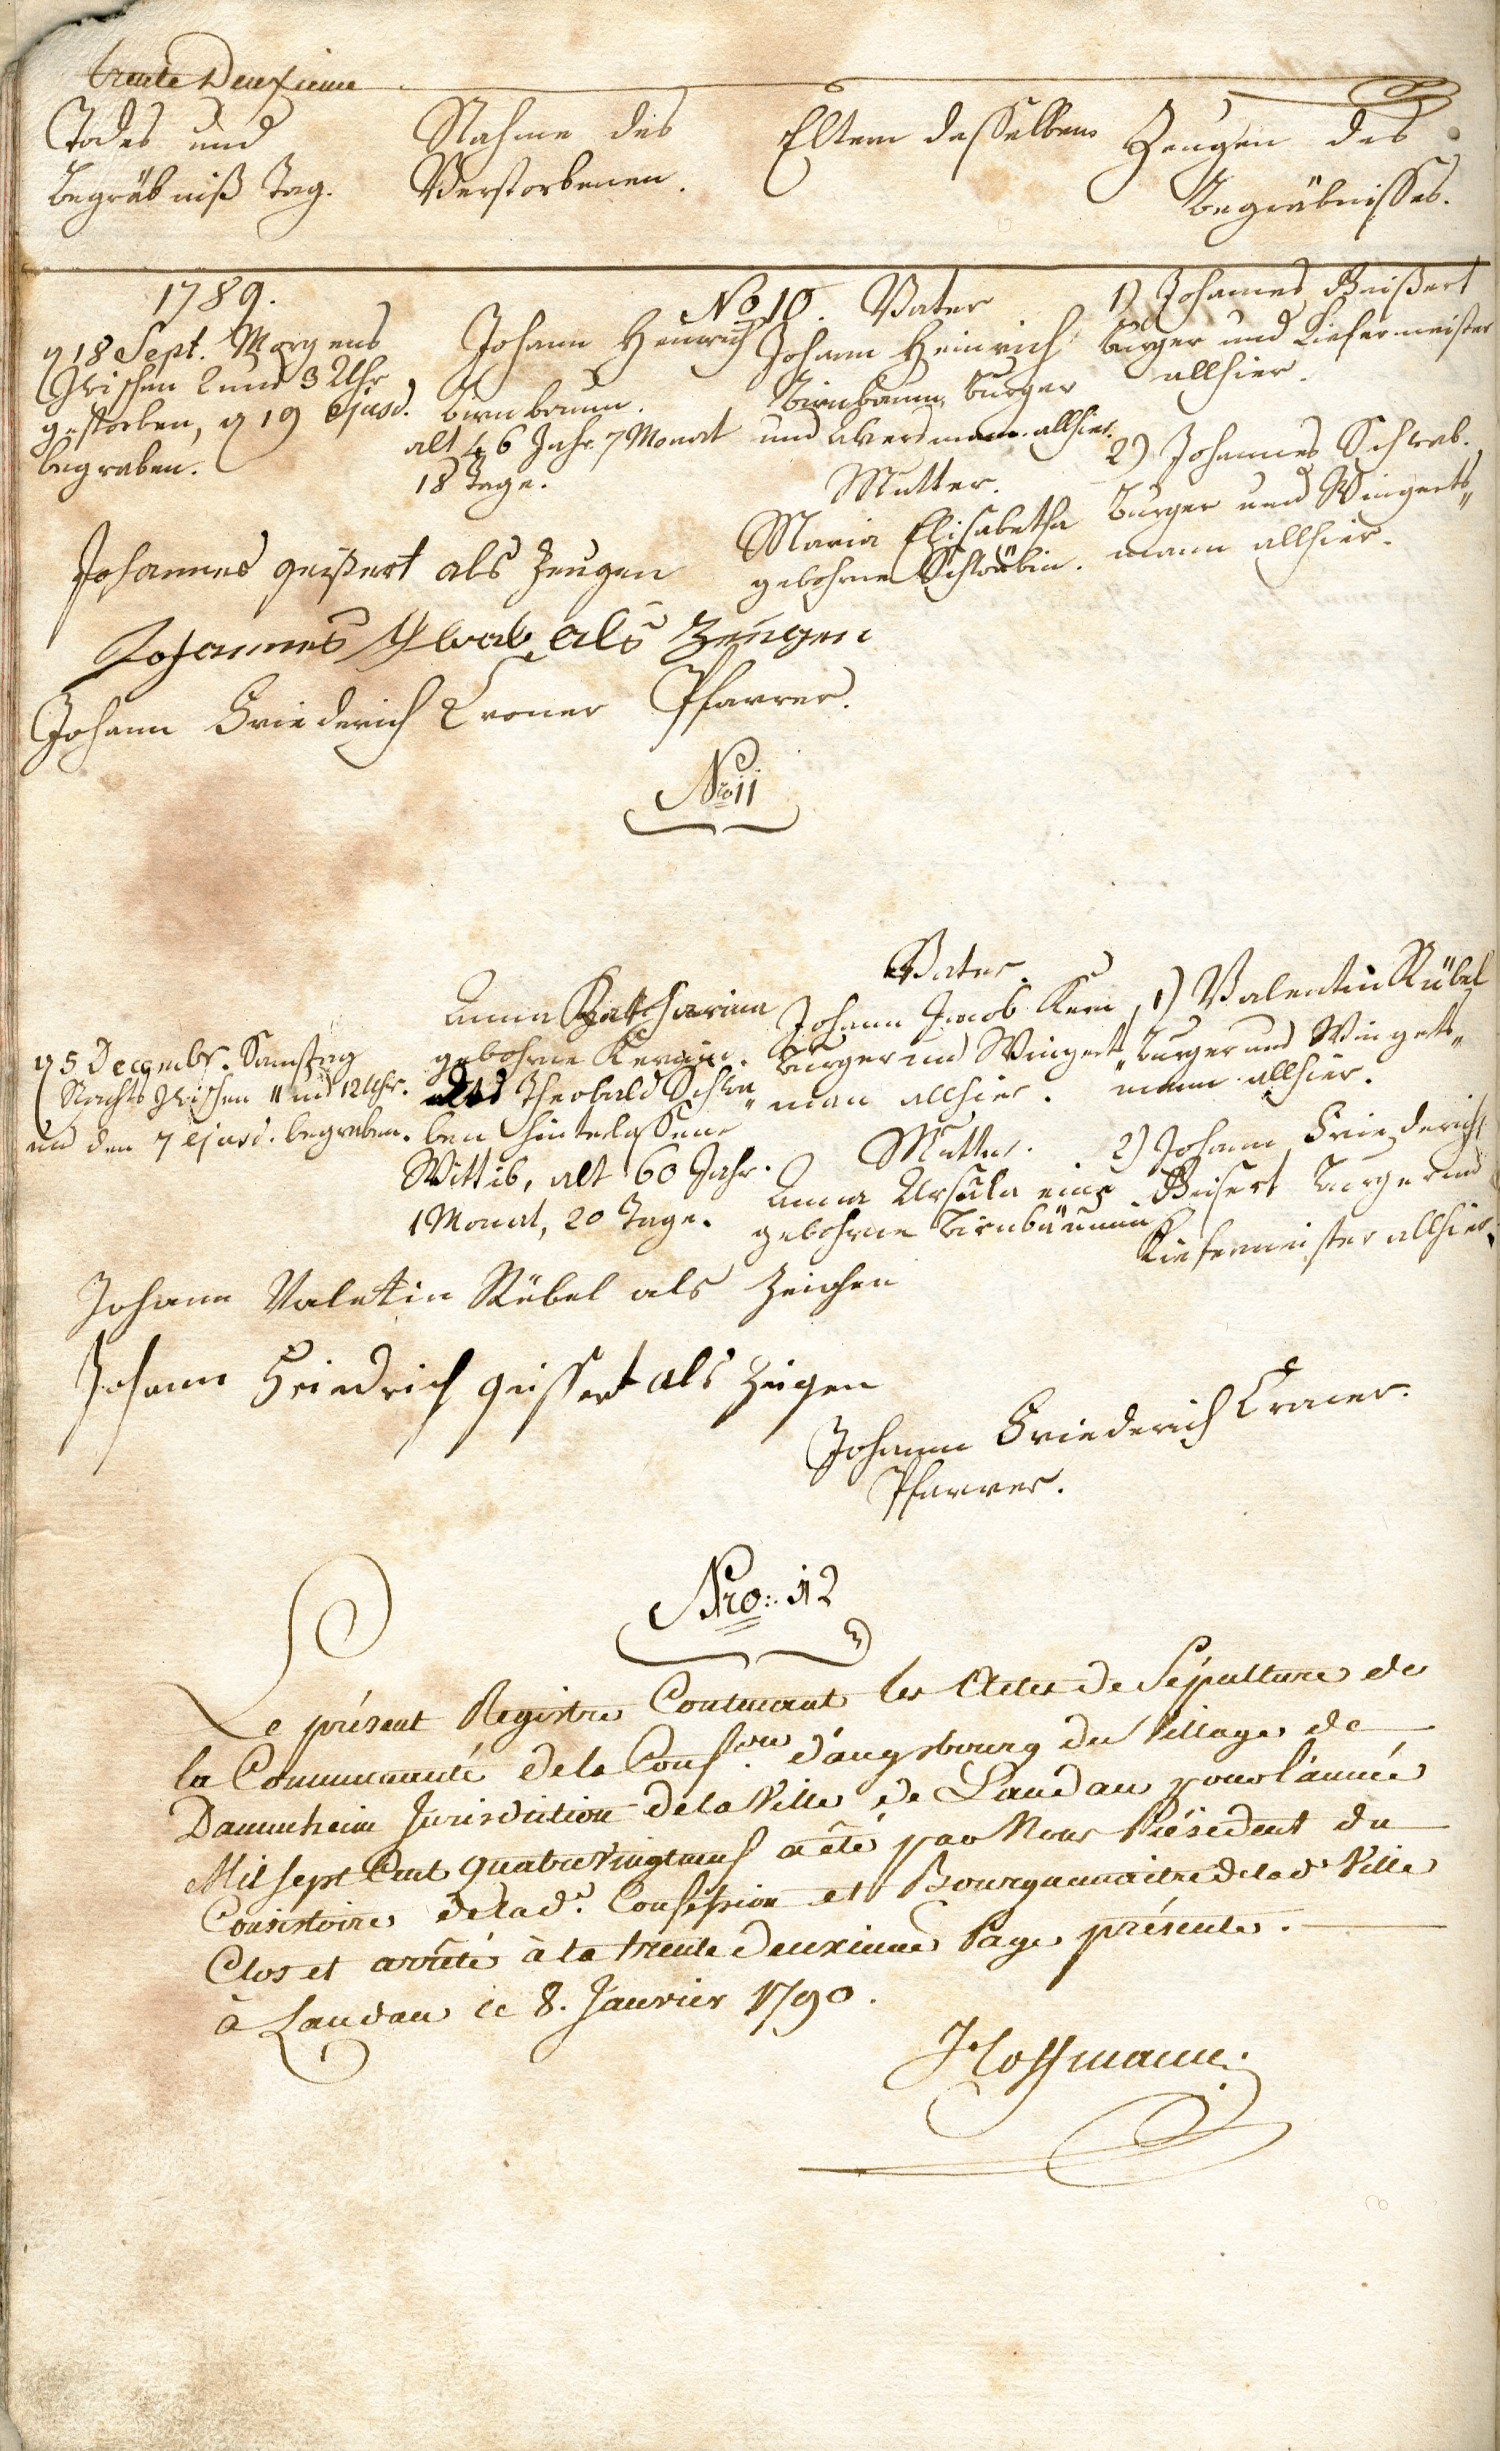 trente Deuxieme
Todes und
Begräbniß Tag.
Nahme des
Verstorbenen.
Eltern desselben
Zeugen des
Begräbnisses.
1789.
d 18 Sept. Morgens
Zwischen 2 und 3 Uhr
gestorben, d 19 ejusd.
begraben.
Johann Henrich
Birnbaum.
alt 46 Jahr 7 Monat
18 Tage.
No 10. Vater
Johann Heinrich
Birnbaum, Burger
und allhier.
Mutter.
Maria Elisabetha
gebohrne Schwäbin.
1) Johannes Geißert
Burger und Kiefermeister
allhier.
2) Johannes Schwab.
Burger und Wingerts„
mann allhier.
Johannes geißert als Zeugen
Johannes Schwab als Zeugen
Johann Friederich Croner Pfarrer.
Nro 11
d 5 Decembr. Samstag
Nachts Zwischen 11 und 12 Uhr.
und den 7 ejusd. begraben.
Anna Katharina
gebohrne
Theobald Schwa„
ben hinterlassene
Wittib, alt 60 Jahr.
1 Monat, 20 Tage.
Vater.
Johann Jacob Kern,
Burger und Wingerts„
man allhier.
Mutter.
Anna Ursula eine
gebohrne Birnbäumin
1) Valentin Rübel
Burger und Wingerts„
mann allhier.
2) Johann Friederich
Geisert Burger und
Kiefermeister allhier.
Johann Valetin Rübel als Zeichen
Johann Friedrich geissert als Zeigen
Johann Friederich Croner.
Pfarrer.
Nro: 12
Le présent Registre Contenant les Actes de Sépulture de
la Communauté de la Conf.on d'augsbourg du Village de
Dammheim Jurisdiction de la Ville de Landau pour l'année
Mil sept Cent quatre Vingt neuf a été par Nous Président du
Consistoire de lad.e Confession et Bourguemaitre de lad.e Ville
Clos et arrêté à la trente deuxieme Page présente.
à Landau le 8. Janvier 1790.
Hoffmann.